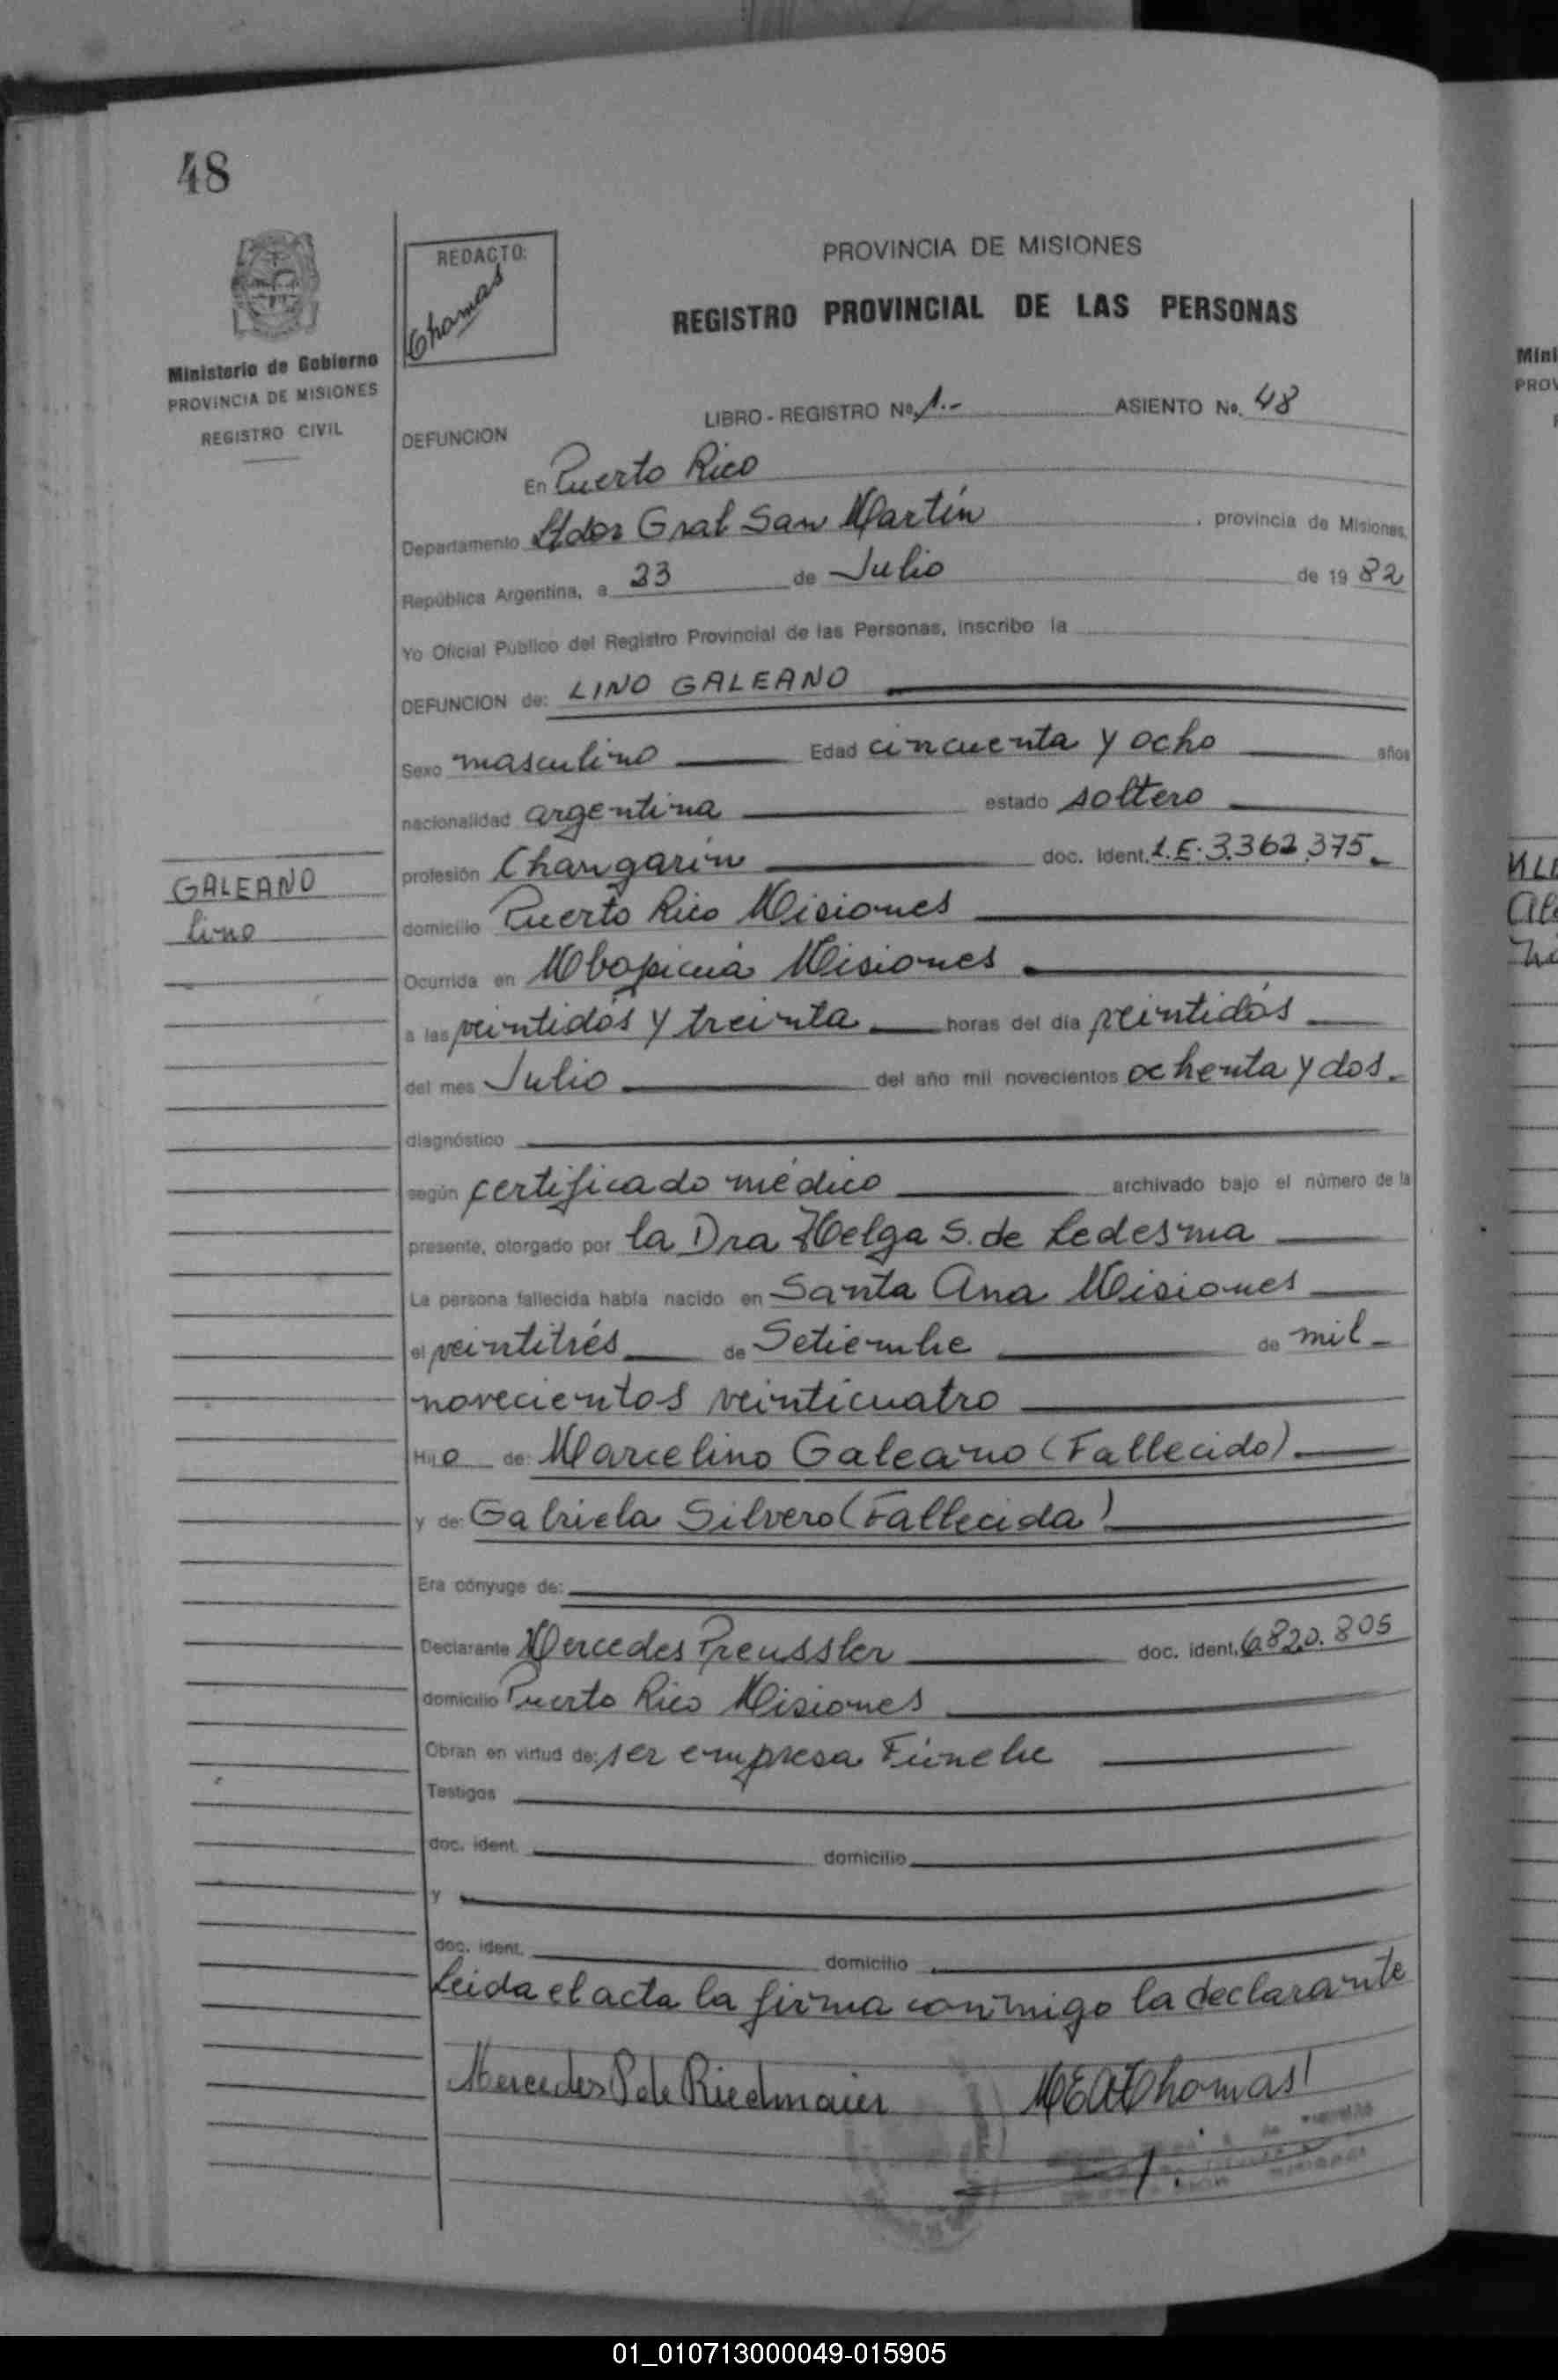 48
REDACTO:
Thomas
PROVINCIA DE MISIONES
REGISTRO PROVINCIAL DE LAS PERSONAS
Ministerio de Gobierno
PROVINCIA DE MISIONES
REGISTRO CIVIL
LIBRO - REGISTRO No. 1.- ASIENTO No. 48
DEFUNCION
En Puerto Rico
Departamento Ltdor Gral San Martín, provincia de Misiones,
República Argentina, a 23 de Julio de 1982
Yo Oficial Público del Registro Provincial de las Personas, inscribo la
DEFUNCION de: LINO GALEANO
Sexo masculino Edad cincuenta y ocho años
nacionalidad argentina estado soltero
profesión Changarín doc. Ident. L.E. 3.362.375.
GALEANO
Lino
domicilio Puerto Rico Misiones
Ocurrida en Mbopicuá Misiones
a las veintidós y treinta horas del día veintidós
del mes Julio del año mil novecientos ochenta y dos.
diagnóstico
según certificado médico archivado bajo el número de la
presente, otorgado por la Dra Helga S. de Ledesma
La persona fallecida había nacido en Santa Ana Misiones
el veintitrés de Setiembre de mil
novecientos veinticuatro
Hijo de: Marcelino Galeano (Fallecido)
y de: Gabriela Silvero (Fallecida)
Era cónyuge de:
Declarante Mercedes Preussler doc. ident. 6.820.805
domicilio Puerto Rico Misiones
Obran en virtud de: ser empresa Fúnebre
Testigos
doc. ident. domicilio
y
doc. ident. domicilio
Leida el acta la firma conmigo la declarante
Mercedes P de Riedmaier M E A Thomas
01_010713000049-015905